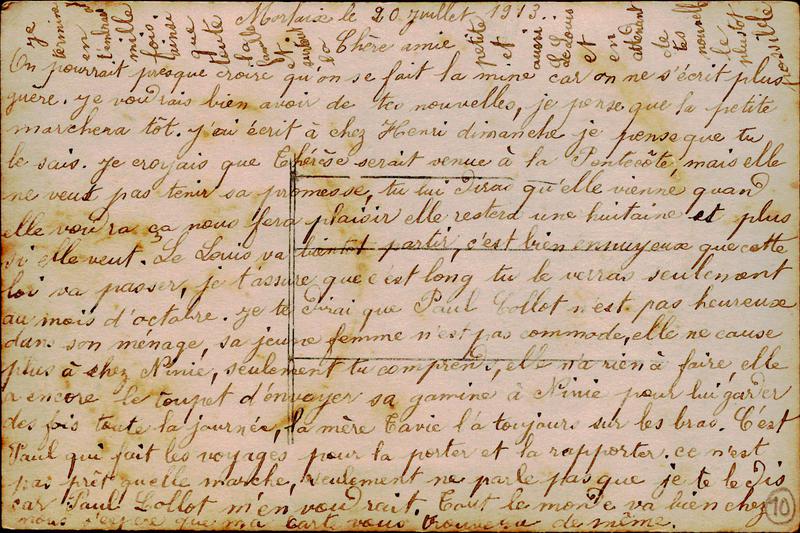 Morlaix le 20 juillet 1913..
Chère amie
On pourrait presque croire qu'on se fait la mine car on ne s'écrit plus
guère. je voudrais bien avoir de tes nouvelles, je pense que la petite
marchera tôt. j'ai écrit à chez Henri dimanche je pense que tu
le sais. je croyais que Thérèse serait venue à la Pentecôte, mais elle
ne veut pas tenir sa promesse, tu lui dirai qu'elle vienne quand
elle voudra ça nous fera plaisir elle restera une huitaine et plus
si elle veut. Le Louis va bientôt partir, c'est bien ennuyeux que cette
loi va passer, je t'assure que c'est long tu le verras seulement
au mois d'octobre. je te dirai que Paul Collot n'est pas heureux
dans son ménage, sa jeune femme n'est pas commode, elle ne cause
plus à chez Ninie, seulement tu comprends, elle n'a rien à faire, elle
a encore le toupet d'envoyer sa gamine à Ninie pour lui garder
des fois toute la journée, la mère Tavie l'a toujours sur les bras. C'est
Paul qui fait les voyages pour la porter et la rapporter. ce n'est
pas prêt quelle marche, seulement ne parle pas que je te le dis
car Paul Collot m'en voudrait. Tout le monde va bien chez
nous j'espère que ma carte vous trouvera de même.
je termine en t'embrassant mille fois ainsi que toute la famille et surtout la petite et aussi Le Louis et en attendant de tes nouvelles le plus tôt possible
10